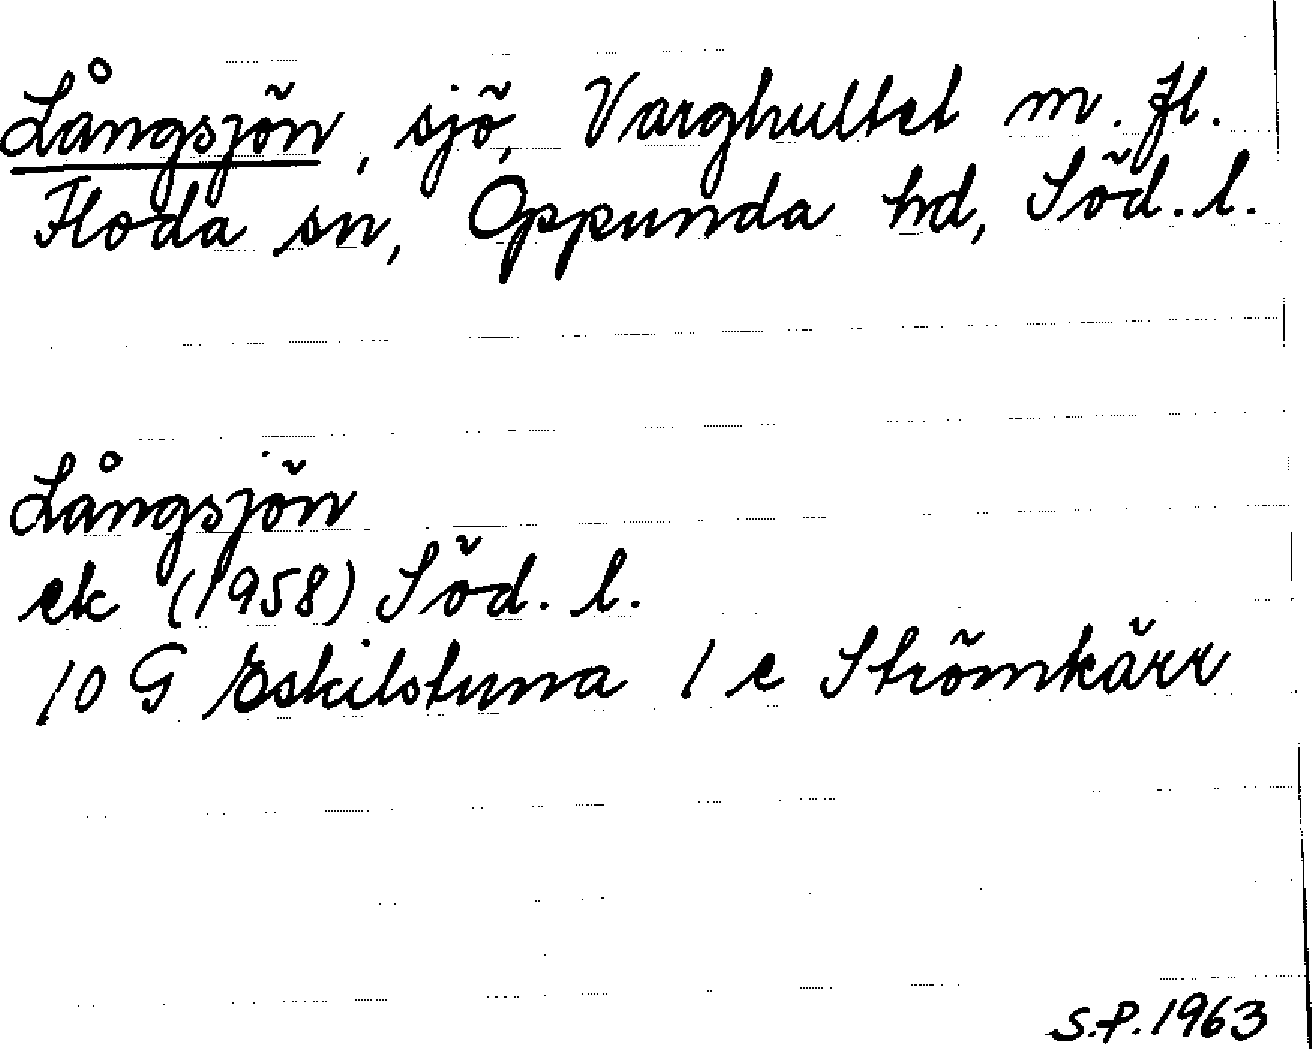 Långsjön, sjö, Varghultet m. fl.
Floda sn, Oppunda hd, Söd. l.
Långsjön
ek (1958) Söd. l.
10 G Eskilstuna 1 e Strömkärr
S.P. 1963